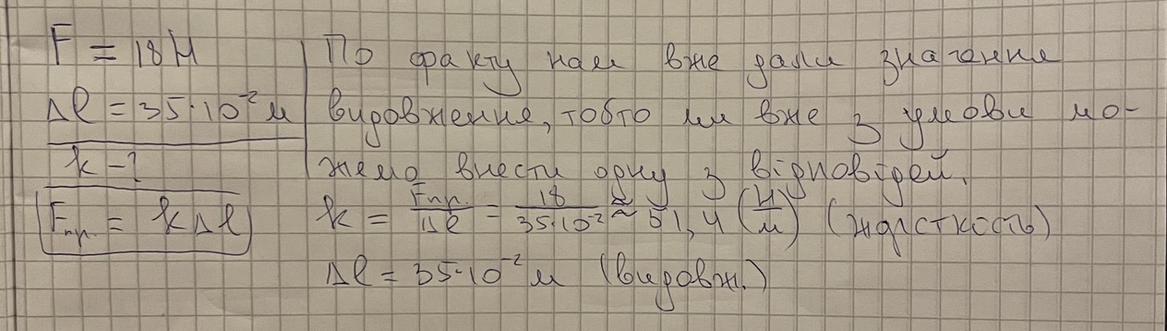 F = 18 Н
Δl = 35·10⁻² м
k - ?
Fпр. = kΔl
По факту нам вже дали значення
видовження, тобто ми вже з умови мо-
жемо внести одну з відповідей.
k = Fпр./Δl = 18/35·10⁻² ≈ 51,4 (Н/м) (жорсткость)
Δl = 35·10⁻² м (видовж.)